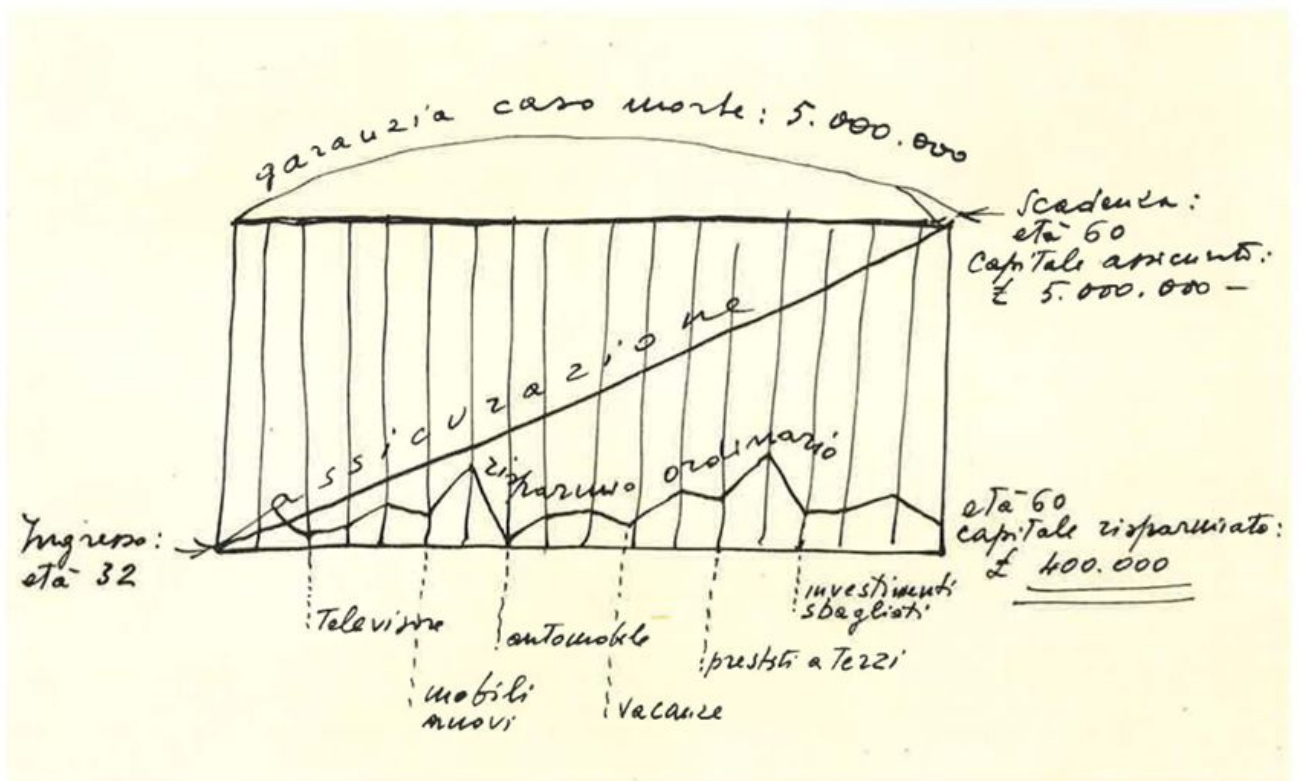 garanzia caso morte: 5.000.000
Scadenza:
età 60
Capitale assicurato:
£ 5.000.000 –
assicurazione
risparmio ordinario
Ingresso:
età 32
età 60
capitale risparmiato:
£ 400.000
Televisore
mobili
nuovi
automobile
vacanze
prestiti a Terzi
investimenti
sbagliati